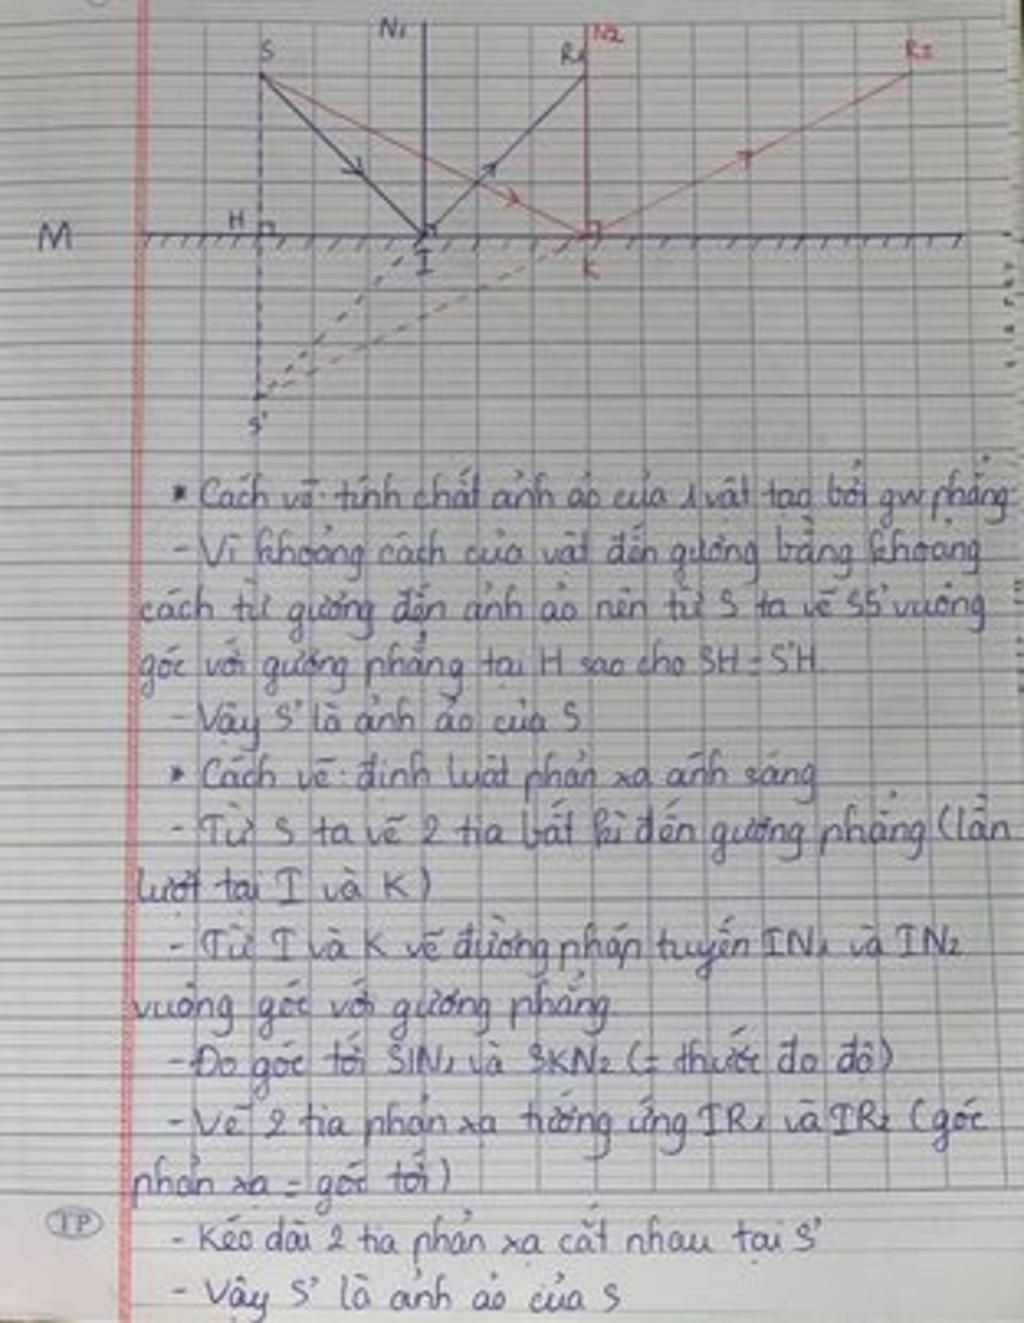 N₁
N2
S
R₁
R2
H
M
I
K
S'
* Cách vẽ: tính chất ảnh ảo của 1 vật tạo bởi gư phẳng
- Vì khoảng cách của vật đến gương bằng khoảng
cách từ gương đến ảnh ảo nên từ S ta vẽ SS' vuông
góc với gương phẳng tại H sao cho SH = S'H.
- Vậy S' là ảnh ảo của S
* Cách vẽ: định luật phản xạ ánh sáng
- Từ S ta vẽ 2 tia bất kì đến gương phẳng (lần
lượt tại I và K)
- Từ I và K vẽ đường pháp tuyến IN₁ và IN₂
vuông góc với gương phẳng.
- Đo góc tới SIN₁ và SKN₂ (= thước đo độ)
- Vẽ 2 tia phản xạ tương ứng IR₁ và IR₂ (góc
phản xạ = góc tới)
- Kéo dài 2 tia phản xạ cắt nhau tại S'
- Vậy S' là ảnh ảo của S
TP